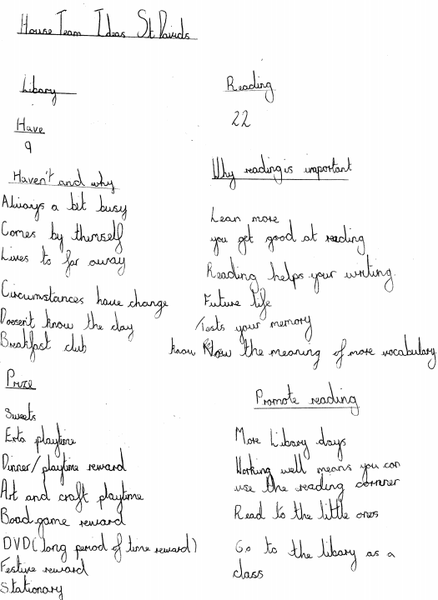 House Team Ideas St Davids
Libary
Have
9
Haven't and why
Always a bit busy
Comes by themself
Lives to far away
Circumstances have change
Doesn't know the day
Breakfast club
Prize
Sweets
Exta playtime
Dinner/playtime reward
Art and craft playtime
Board game reward
DVD (long period of time reward)
Festive reward
Stationary
Reading
22
Why reading is important
Learn more
you get good at reading
Reading helps your writing
Future life
Tests your memory
know the meaning of more vocabulary
Promote reading
More Libary days
Working well means you can
use the reading cornner
Read to the little ones
Go to the libary as a
class